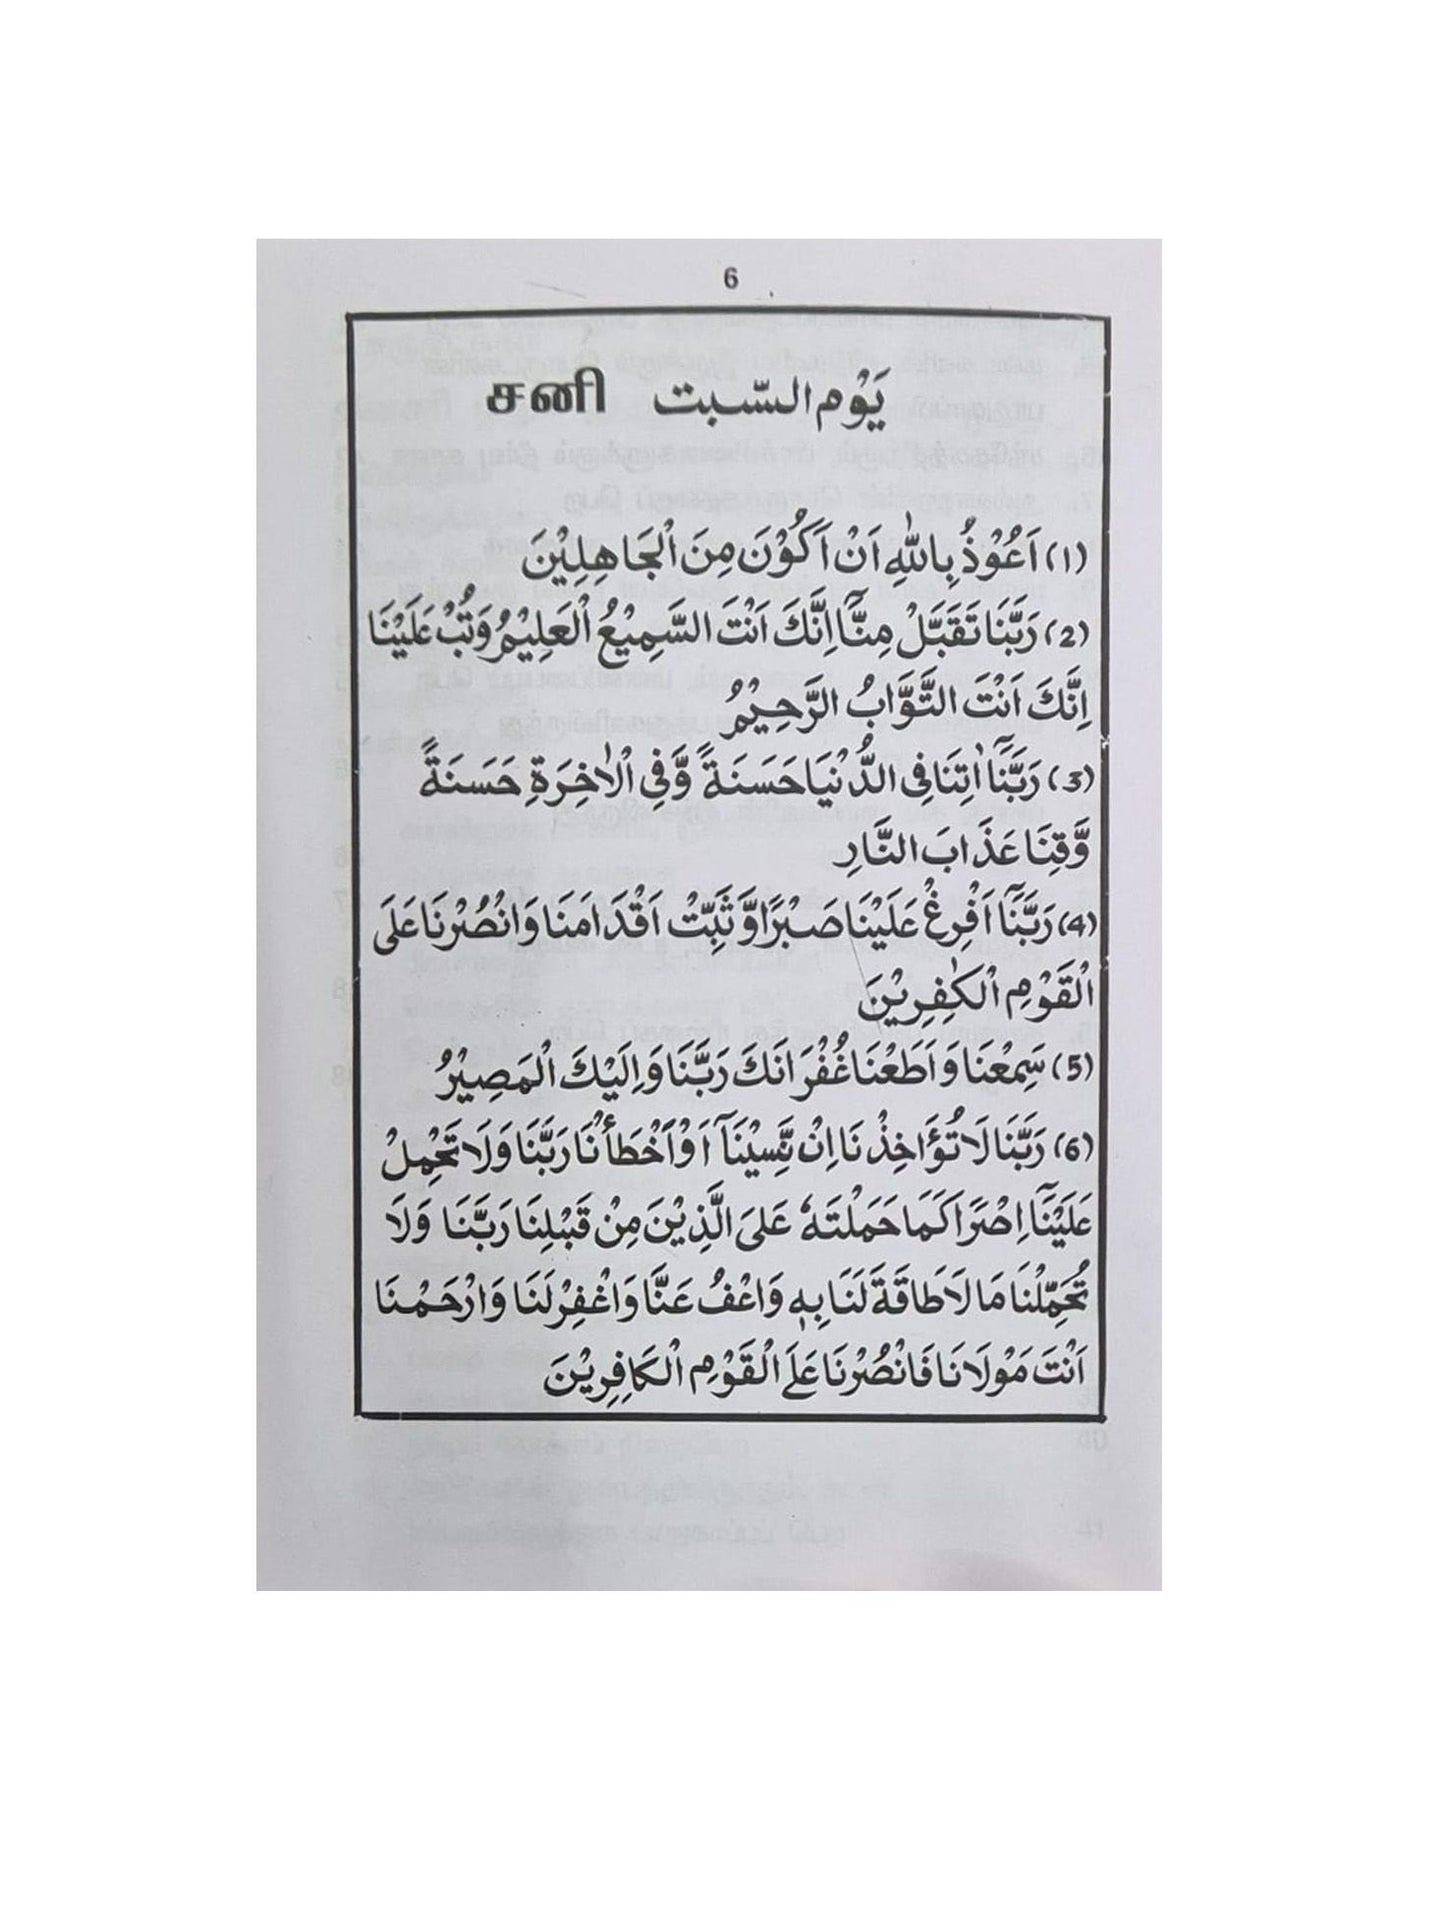 6
يَوْم السّبت சனி
(1) اَعُوْذُ بِاللّٰهِ اَنْ اَكُوْنَ مِنَ الْجَاهِلِيْنَ
(2) رَبَّنَا تَقَبَّلْ مِنَّآ اِنَّكَ اَنْتَ السَّمِيْعُ الْعَلِيْمُ وَتُبْ عَلَيْنَا
اِنَّكَ اَنْتَ التَّوَّابُ الرَّحِيْمُ
(3) رَبَّنَآ اٰتِنَا فِى الدُّنْيَا حَسَنَةً وَّفِى الْاٰخِرَةِ حَسَنَةً
وَّقِنَا عَذَابَ النَّارِ
(4) رَبَّنَآ اَفْرِغْ عَلَيْنَا صَبْرًا وَّثَبِّتْ اَقْدَامَنَا وَانْصُرْنَا عَلَى
الْقَوْمِ الْكٰفِرِيْنَ
(5) سَمِعْنَا وَاَطَعْنَا غُفْرَانَكَ رَبَّنَا وَاِلَيْكَ الْمَصِيْرُ
(6) رَبَّنَا لَا تُؤَاخِذْنَا اِنْ نَّسِيْنَآ اَوْ اَخْطَأْنَا رَبَّنَا وَلَا تَحْمِلْ
عَلَيْنَآ اِصْرًا كَمَا حَمَلْتَهٗ عَلَى الَّذِيْنَ مِنْ قَبْلِنَا رَبَّنَا وَلَا
تُحَمِّلْنَا مَا لَا طَاقَةَ لَنَا بِهٖ وَاعْفُ عَنَّا وَاغْفِرْلَنَا وَارْحَمْنَا
اَنْتَ مَوْلَانَا فَانْصُرْنَا عَلَى الْقَوْمِ الْكَافِرِيْنَ